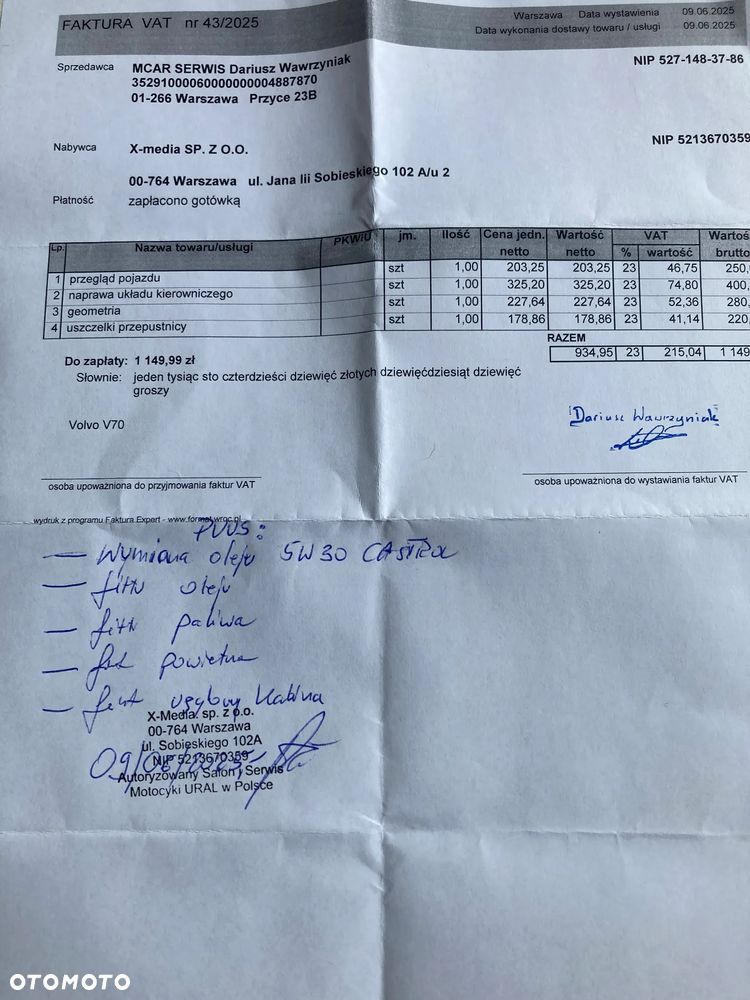 FAKTURA VAT nr 43/2025
Warszawa Data wystawienia 09.06.2025
Data wykonania dostawy towaru / usługi 09.06.2025
Sprzedawca MCAR SERWIS Dariusz Wawrzyniak NIP 527-148-37-86
35291000060000000004887870
01-266 Warszawa Przyce 23B
Nabywca X-media SP. Z O.O. NIP 5213670359
00-764 Warszawa ul. Jana Iii Sobieskiego 102 A/u 2
Płatność zapłacono gotówką
Lp. Nazwa towaru/usługi PKWiU jm. Ilość Cena jedn. netto Wartość netto VAT % wartość Wartoś brutto
1 przegląd pojazdu szt 1,00 203,25 203,25 23 46,75 250,
2 naprawa układu kierowniczego szt 1,00 325,20 325,20 23 74,80 400,
3 geometria szt 1,00 227,64 227,64 23 52,36 280,
4 uszczelki przepustnicy szt 1,00 178,86 178,86 23 41,14 220,
RAZEM
934,95 23 215,04 1 149
Do zapłaty: 1 149,99 zł
Słownie: jeden tysiąc sto czterdzieści dziewięć złotych dziewięćdziesiąt dziewięć
groszy
Volvo V70
Dariusz Wawrzyniak
osoba upoważniona do przyjmowania faktur VAT
osoba upoważniona do wystawiania faktur VAT
wydruk z programu Faktura Expert - www.format.wroc.pl
— Wymiana oleju 5W30 CASTROL
— filtr oleju
— filtr paliwa
— powietrza
— kabina
X-Media. sp. z o.o.
00-764 Warszawa
ul. Sobieskiego 102A
NIP 5213670359
09/06/2025
Autoryzowany Salon i Serwis
Motocykli URAL w Polsce
OTOMOTO